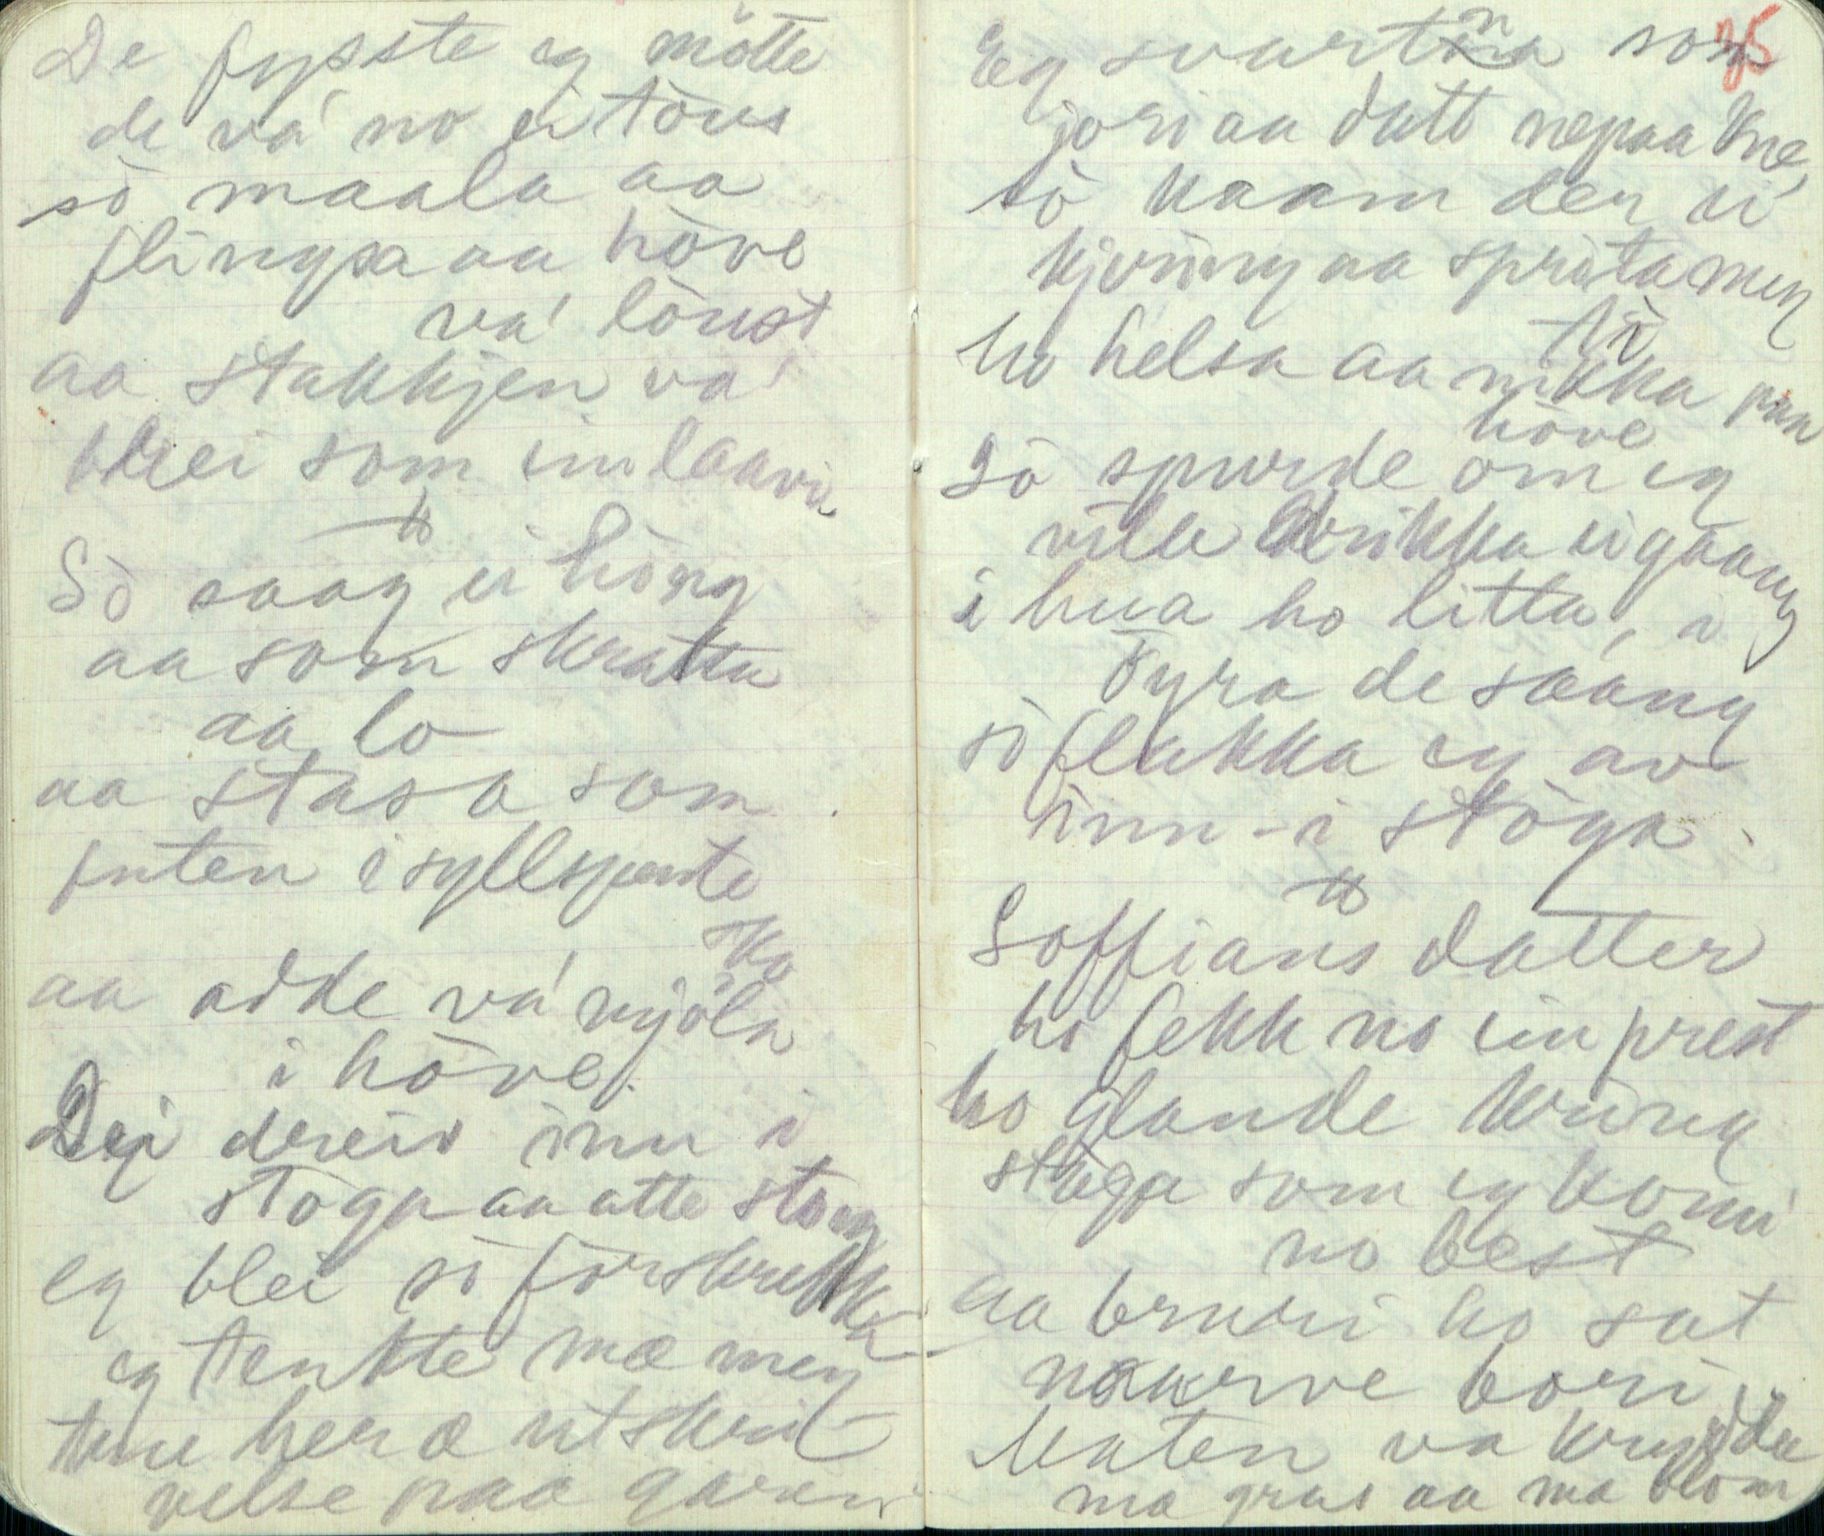 De fysste eg mötte
de va' no ei töus
sò maala aa
flinysa aa höve
va' löust
aa stakkjen va'
brei som ein laavi
Sò saag ei höng
aa som skratta
aa lo
aa stasa som
futen i syllspente
sko
aa adde va' njöla
i höve.
Dei dreiv inn i
stöga aa atte stong
eg blei sò forskrekka
eg tenkte mæ mey
tru her æ utskri
velse paa garen
35
Eg svartna som
jori aa datt nepaa kne,
sò kaam der ei
kjöning aa sprita mey
ho helsa aa nikka paa
höve
Sò spurde om eg
ville drikka ei gaang
i hua ho litta, i
öyra de saang
sò flakka eg av
inn-i stöga
Soffians datter
ho fekk no ein prest
ho glande kring
stöga som eg komi
no best
aa bruri ho sat
nörve bori
Maten va krydda
mæ gras aa mæ blom